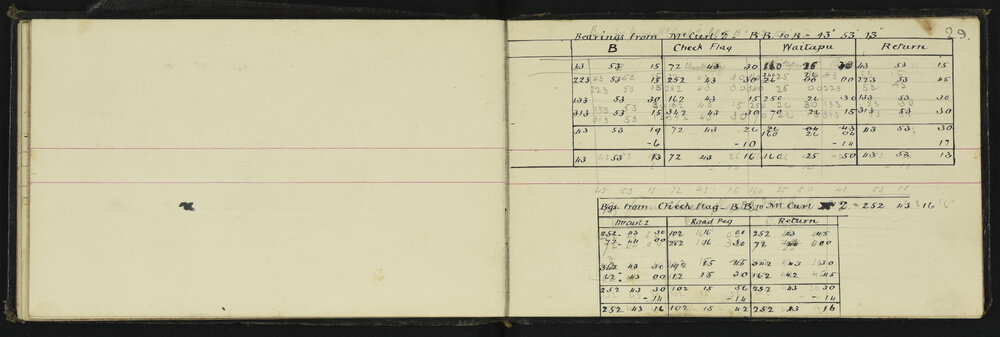 29.
Bearings from McCurl 2. B.B. to B = 43° 53' 13"
B Check Flag Waitapu Return
43 53 15 72 43 30 160 25 30 43 53 15
223 53 15 252 43 30 26 00 223 53 45
133 53 30 162 43 15 250 26 30 133 53 30
313 53 15 342 43 30 70 15 313 53 30
43 53 19 72 43 26 26 04 43 43 53 30
160 26 04
-6 -10 -14 17
43 53 13 72 43 16 160 25 50 43 53 13
Bgs. from Check Flag B.B. to Mt Curl 2 = 252 43 16
Mt Curl 2 Road Peg Return
252 43 30 102 16 00 252 43 45
72 44 00 282 16 30 72 44 00
342 43 30 192 15 45 342 43 30
162 43 00 12 15 30 162 42 45
252 43 30 102 15 56 252 43 30
-14 -14 -14
252 43 16 102 15 42 252 43 16